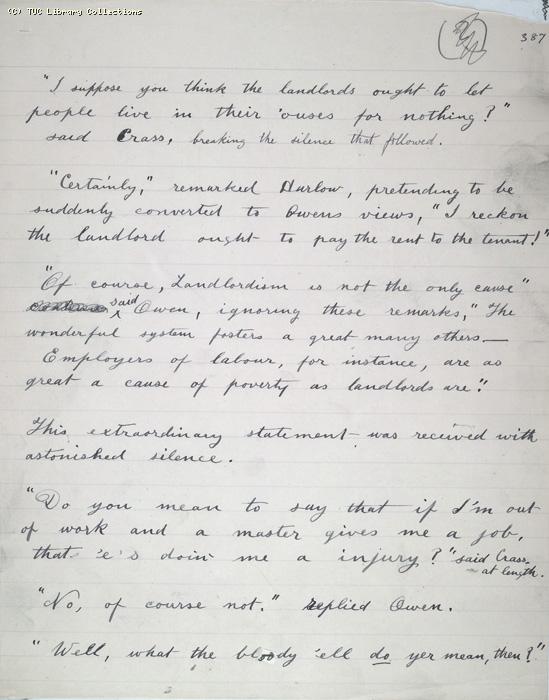 (C) TUC Library Collections
387
"I suppose you think the landlords ought to let
people live in their 'ouses for nothing?"
said Crass, breaking the silence that followed.
"Certainly," remarked Harlow, pretending to be
suddenly converted to Owens views, "I reckon
the landlord ought to pay the rent to the tenant!"
"Of course, Landlordism is not the only cause"
said Owen, ignoring these remarks, "The
wonderful system fosters a great many others—
Employers of labour, for instance, are as
great a cause of poverty as landlords are".
This extraordinary statement was received with
astonished silence.
"Do you mean to say that if I'm out
of work and a master gives me a job,
that 'e's doin' me a injury?" said Crass
at length.
"No, of course not." replied Owen.
"Well, what the bloody 'ell do yer mean, then?"